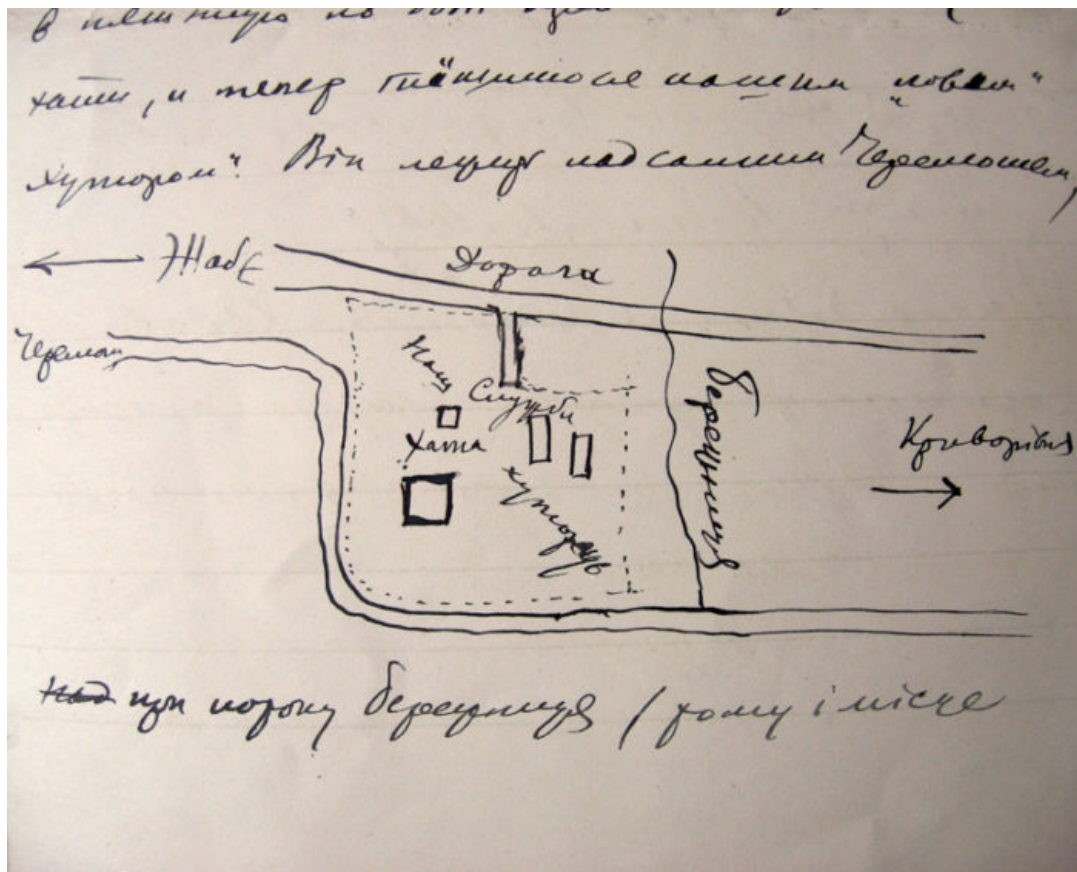 хати, и тепер тїщимося нашим "новым"
хутором". Він лежит над самим Черемошем,
Жабє
Дорога
Черемош
Наш
Служби
Хата
хуторець
Бережниця
Криворівня
при потоку Бережниця / тому і місце